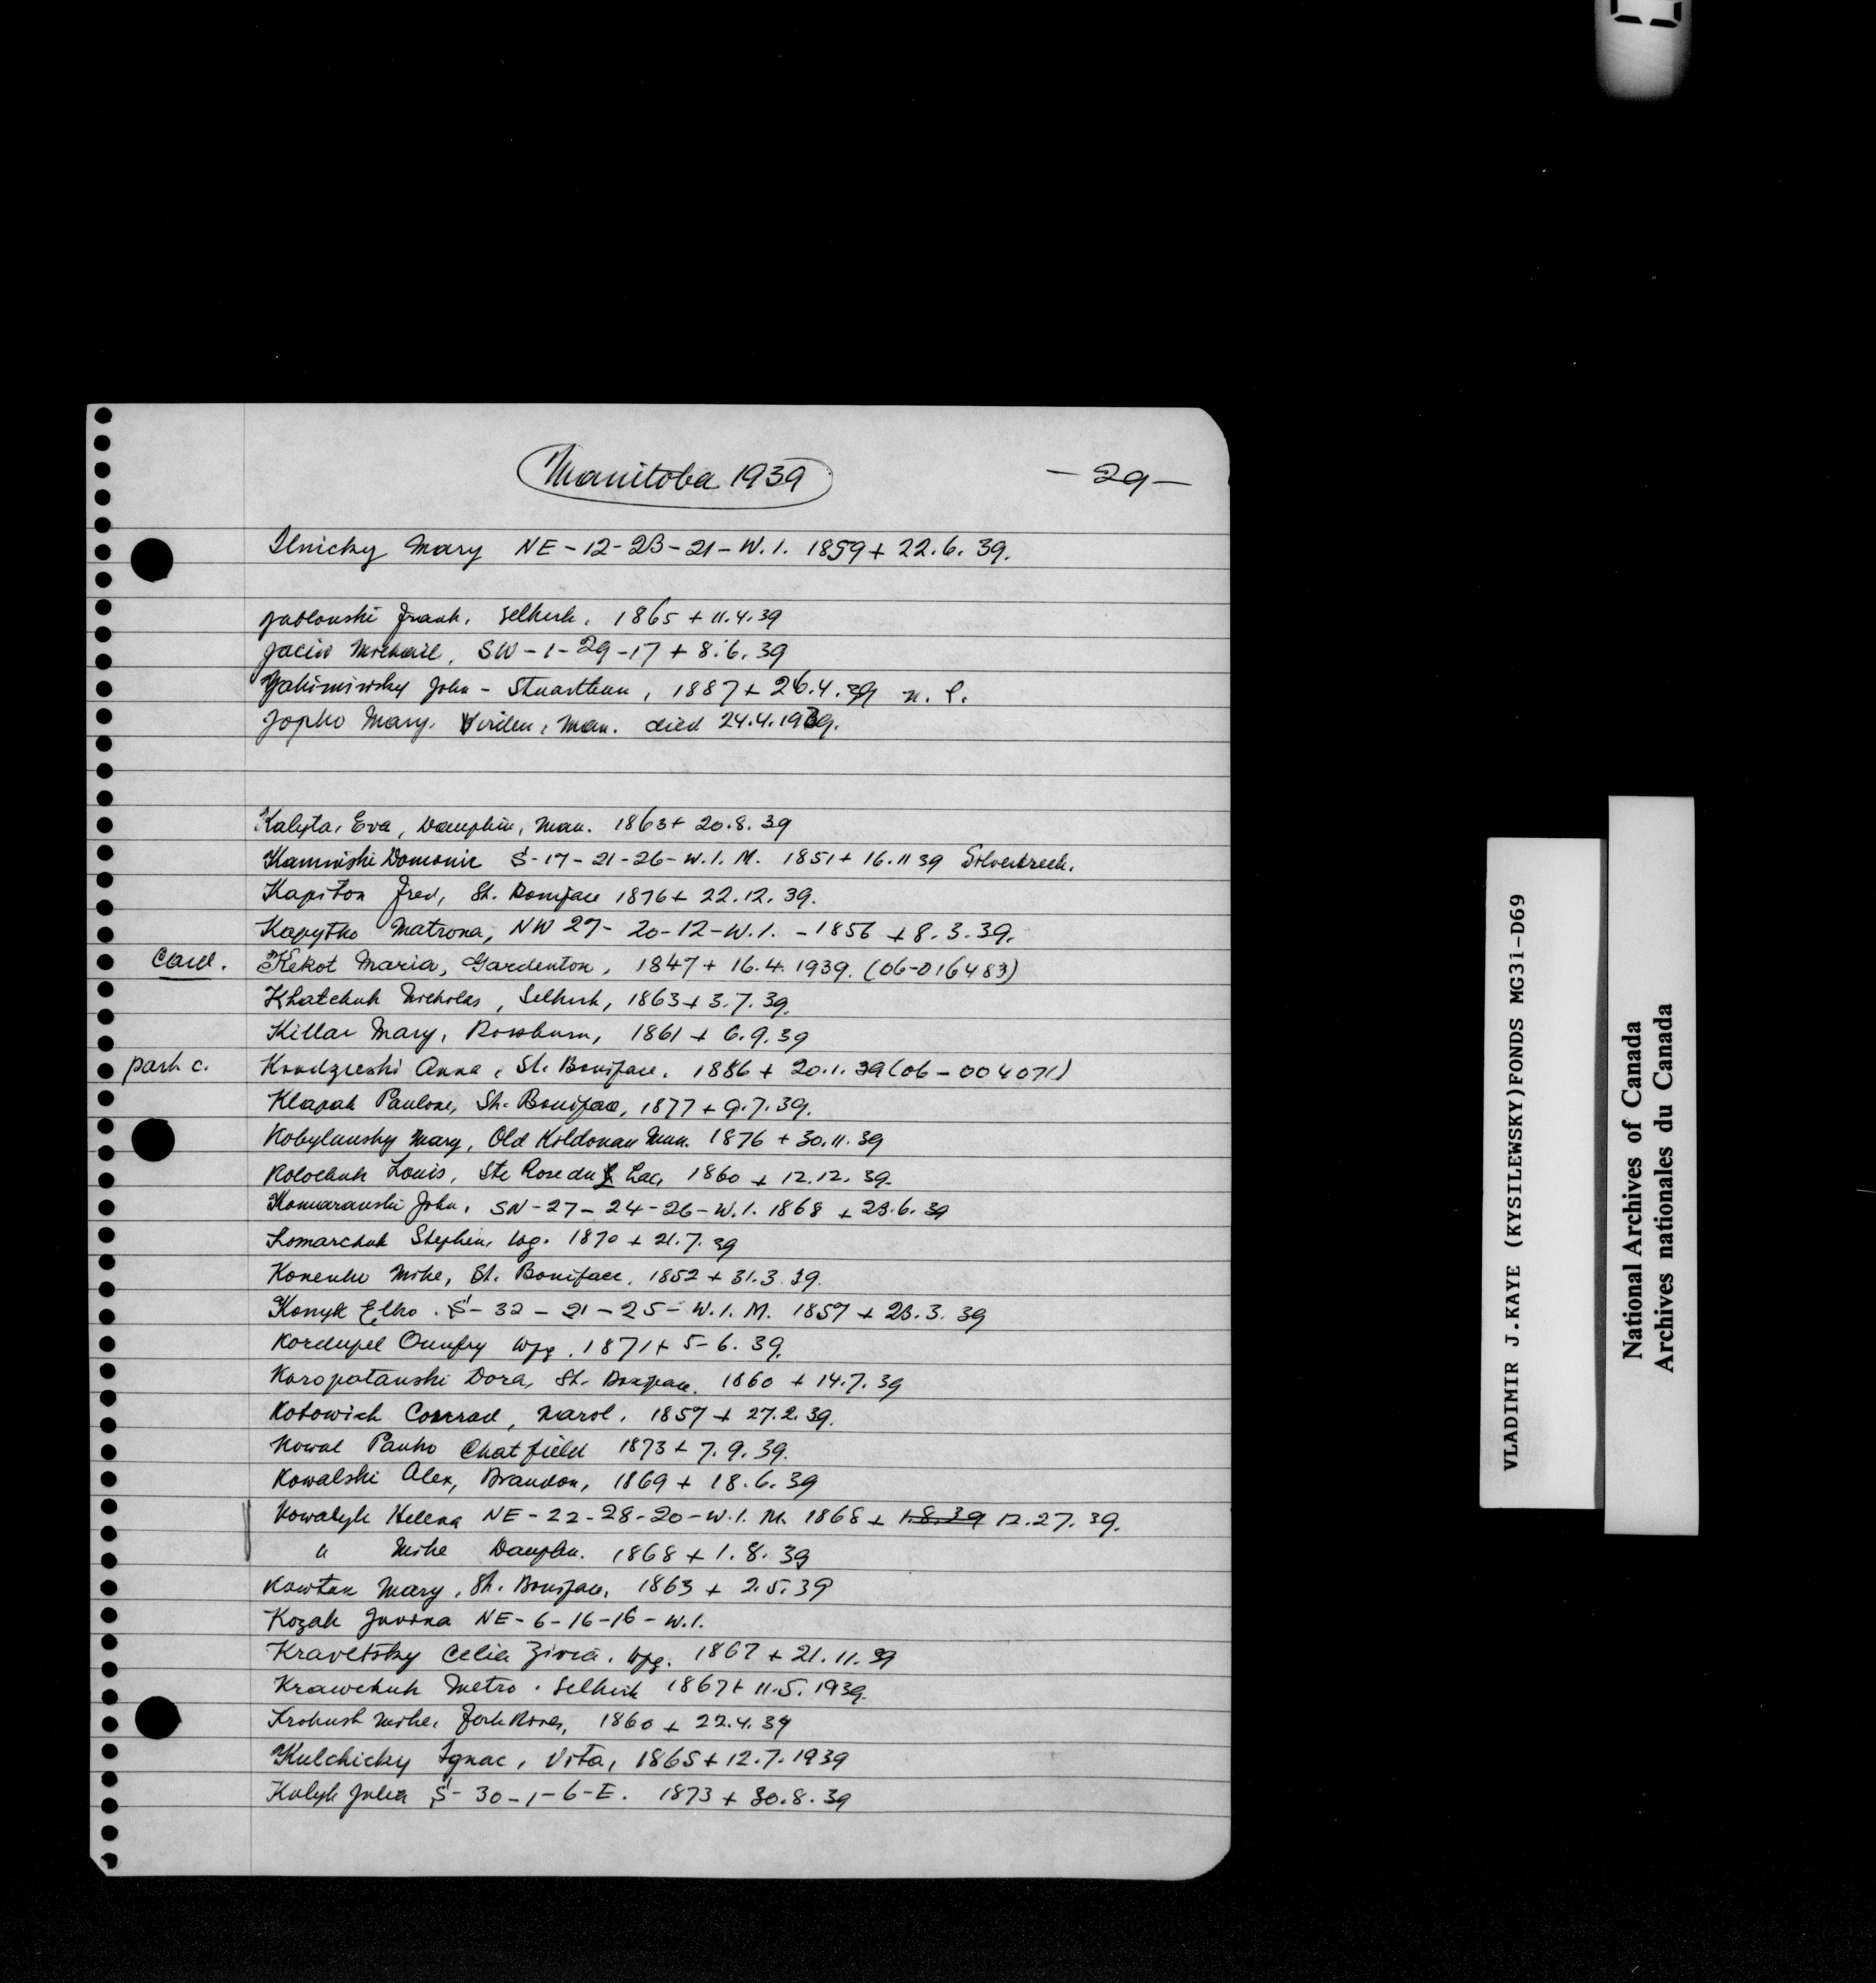 Manitoba 1939
- 29 -
Ilnicky Mary NE-12-23-21-W.1. 1859 + 22.6.39.
Jablonski Frank, Selkirk, 1865 + 11.4.39
Jaciw Michael, SW-1-29-17 + 8.6.39
Yakimiwsky John - Stuartburn, 1887 + 26.4.39
Jopko Mary, Virden, Man. died 24.4.1939.
Kalyta, Eva, Dauphin, Man. 1863 + 20.8.39
Kaminski Domonic S-17-21-26-W.1.M. 1851 + 16.11 39 Silvercreek.
Kapiton Fred, St. Boniface 1876 + 22.12.39.
Kapytko Matrona, NW 27-20-12-W.1. - 1856 + 8.3.39.
Card. Kekot Maria, Gardenton, 1847 + 16.4.1939. (06-016483)
Khatchuk Nicholas, Selkirk, 1863 + 3.7.39.
Killar Mary, Rossburn, 1861 + 6.9.39
park c. Anna, St. Boniface, 1886 + 20.1.39 (06-004071)
Klapak Pauline, St. Boniface, 1877 + 9.7.39.
Kobylansky Mary, Old Kildonan Mun. 1876 + 30.11.39
Kolochuk Louis, Ste Rose du Lac, 1860 + 12.12.39.
Komaranski John, SW-27-24-26-W.1. 1868 + 23.6.39
Komarchuk Stephen, 1870 + 21.7.39
Konenko Mike, St. Boniface, 1852 + 31.3.39.
Konyk Elko. S-32-21-25-W.1.M. 1857 + 23.3.39
Kordupel Onufry Wpg. 1871 + 5-6.39.
Koropatanski Dora, St. Boniface. 1860 + 14.7.39
Kotowich Conrad, Narol, 1857 + 27.2.39.
Kowal Panko Chatfield 1873 + 7.9.39.
Kowalski Alex, Brandon, 1869 + 18.6.39
Kowalyk Helena NE-22-28-20-W.1.M. 1868 + 1.8.39 12.27.39.
" Mike Dauphin. 1868 + 1.8.39
Kowtan Mary, St. Boniface, 1863 + 2.5.39
Kozak NE-6-16-16-W.1.
Kravetsky Celia Zivia, Wpg. 1867 + 21.11.39
Krawchuk Metro. Selkirk 1867 + 11.5.1939.
Krokush Mike, Fork River, 1860 + 22.4.39
Kulchicky Ignac, Vita, 1865 + 12.7.1939
Kulyk Julia S-30-1-6-E. 1873 + 30.8.39
VLADIMIR J.KAYE (KYSILEWSKY)FONDS MG31-D69
National Archives of Canada
Archives nationales du Canada